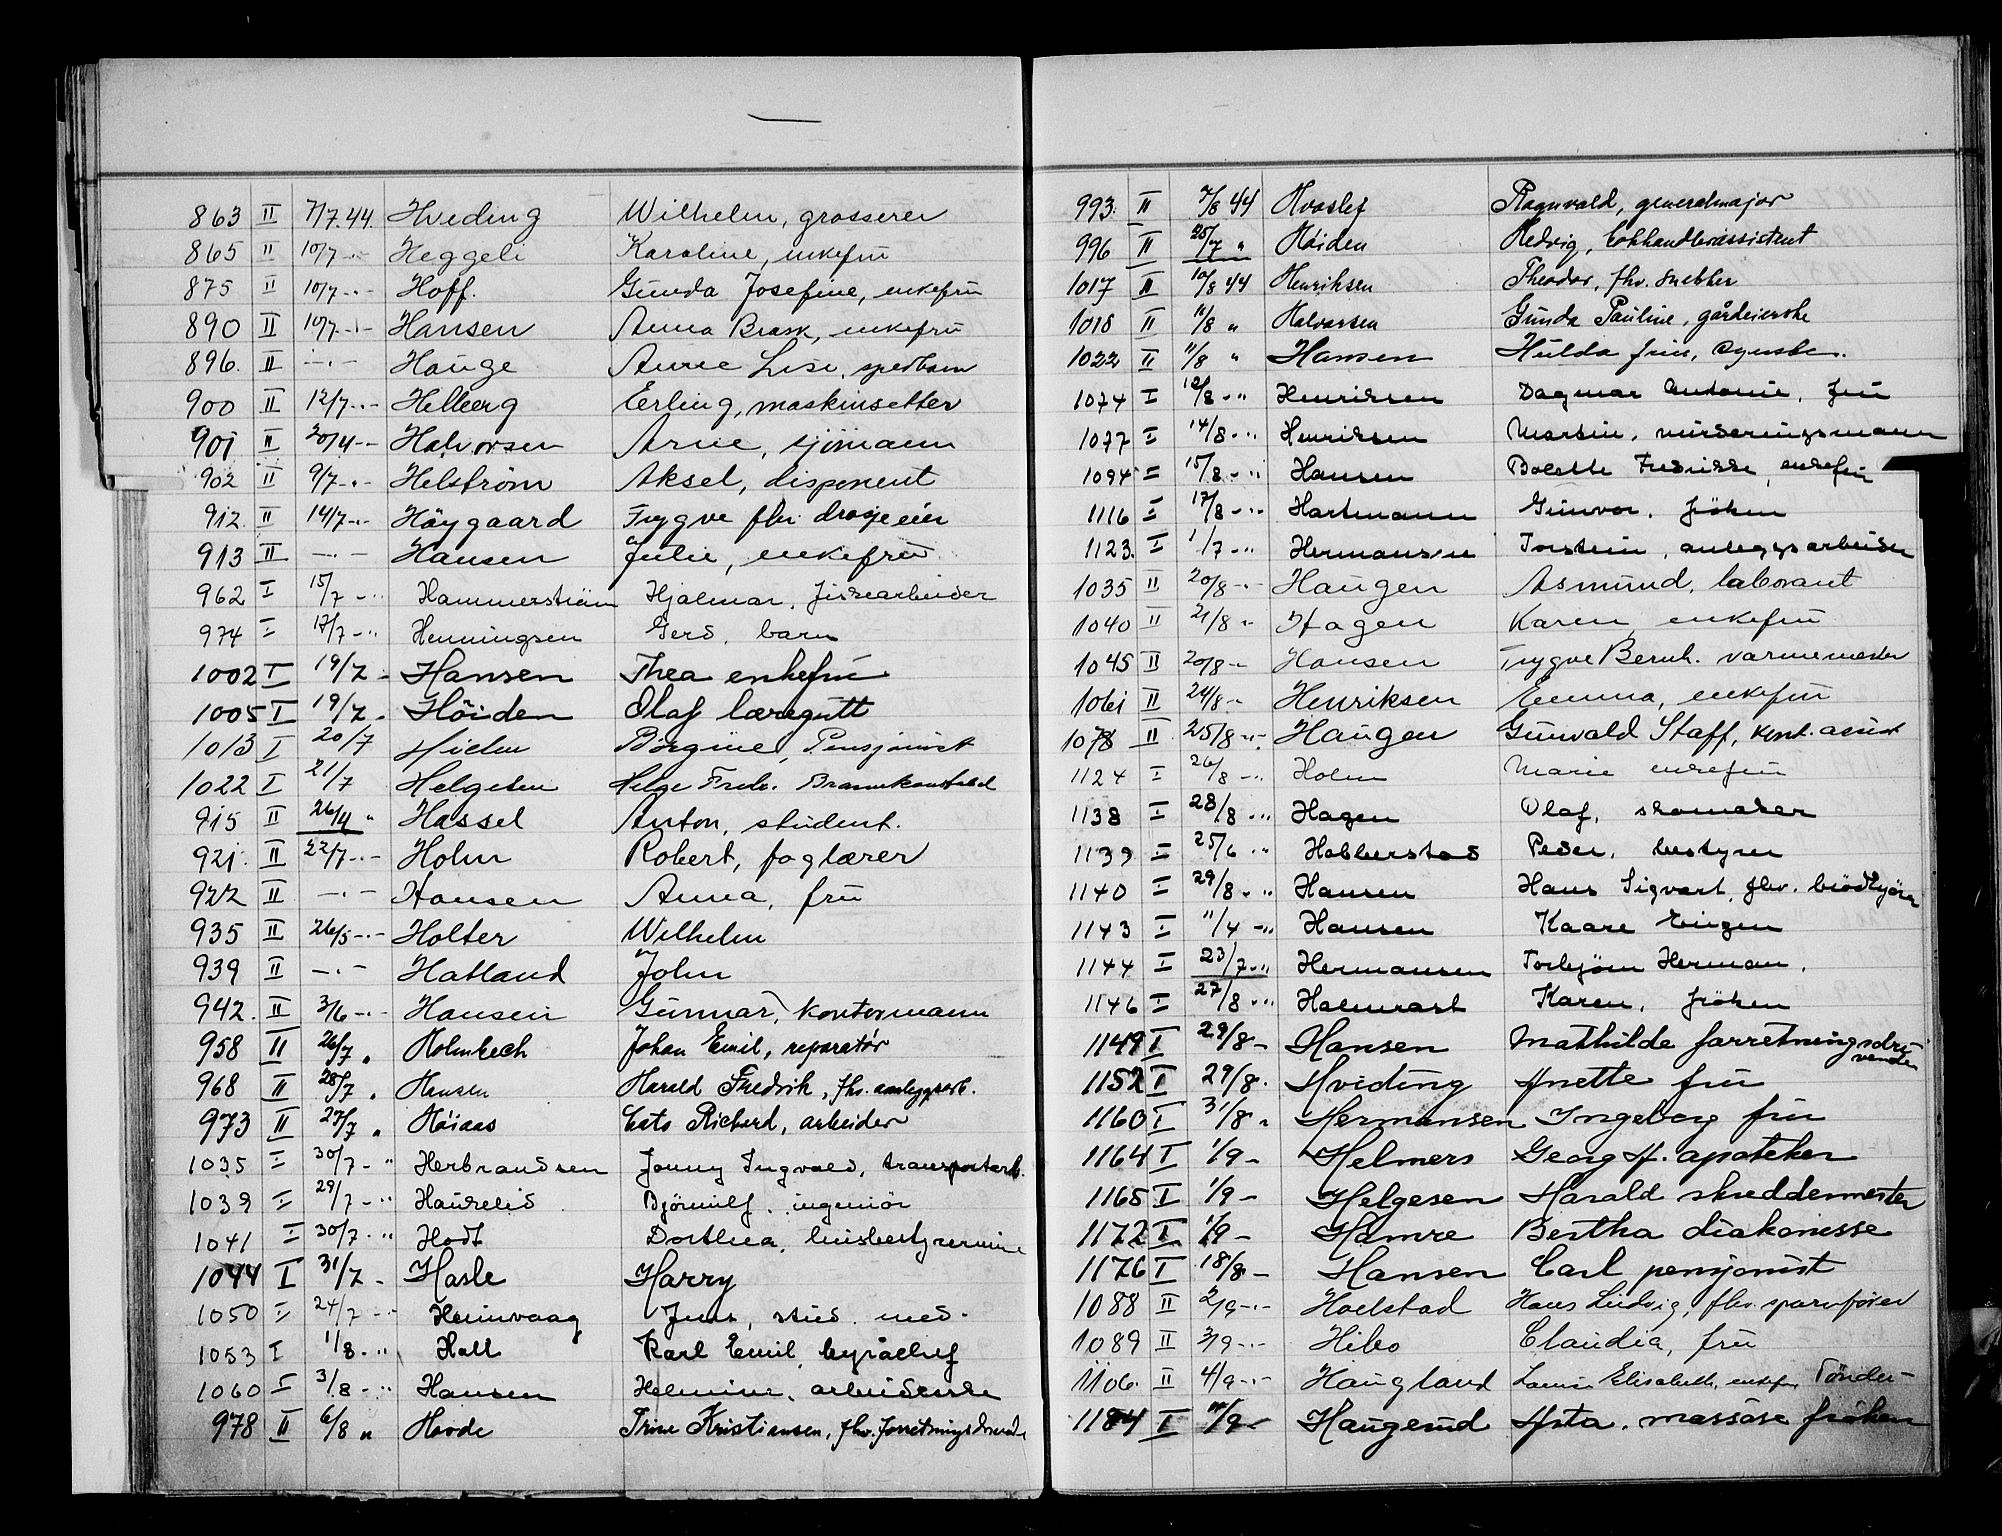 863 II 7/7.44. Hveding Wilhelm, grosserer
865 II 10/7 -.- Heggeli Karoline, enkefru
875 II 10/7 -.- Hoff. Gunda Josefine, enkefru
890 II 10/7 -.- Hansen Anna Brask, enkefru
896. II -.- Hauge Anne Lise, spedbarn
900 II 12/7 -.- Helberg Erling, maskinsetter
901 II 20/4 -.- Halvorsen Arne, sjömann
902 II 9/7 -.- Helström Aksel, disponent
912. II 14/7 -.- Höygaard Trygve fhv. drosjeeier
913 II -.- Hansen Julie, enkefru
962 I 15/7 -"- Hammerström Hjalmar, fiskearbeider
974 I 17/7 -"- Henningsen Gerd, barn
1002 I 19/7 - Hansen Thea enkefru
1005 I 19/7 - Höiden Olaf læregutt
1013 I 20/7 Borgine, Pensjonist
1022 I 21/7 Helgesen Helge Fredr. Brannkonstabel
915 II 26/4 " Hassel Anton, student.
921. II 22/7 -.- Holm Robert, faglærer
922 II -.- Hansen Anna, fru
935 II 26/5 -.- Holter Wilhelm
939 II -.- Hatland John
942. II 3/6 -.- Hansen Gunnar, kontormann
958 II 26/7 " Holmbech Johan Emil, reparatør
968 II 28/7 " Hansen Harald Fredrik, fhv. anleggsarb.
973 II 27/7 " Höiaas Cato Richard, arbeider
1035 I 30/7 -" Herbrandsen Jonny Ingvald, transportarb.
1039 I 29/7 -" Haukelid Bjørnulf, ingeniør
1041 I 30/7 -" Hodt Dorthea, husbestyrerinne
1044 I 31/7 - Hasle Harry
1050 I 24/7 -"- Heimvaag Jens, stud. med.
1053 I 1/8 -" Hall Karl Emil, byråchef
1060 I 3/8 -" Hansen Helmine, arbeiderske
978 II 6/8 " Hovde Trine Kristiansen, fhv. forretningsdrivende
993. II 7/8 44 Hvoslef Ragnvald, generalmajor
996 II 25/7 " Höiden Hedvig, bokhandlerassistent
1017 II 10/8 44 Henriksen Theodor, fhv. snekker
1018 II 11/8 " Halvorsen Gunda Pauline, gårdeierske
1022 II 11/8 " Hansen Hulda fru,
1074 I 12/8 -" Henriksen Dagmar Antonie, fru
1077 I 14/8 -" Henriksen Martin, murderingsmann
1094 I 15/8 -" Hansen Bolette Fredrikke, enkefru
1116 I 17/8 -" Hartmann Gunvor, fröken
1123. I 1/7 -" Hermansen Torstein, anleggsarbeider
1035 II 20/8 -.- Haugen Asmund, laborant
1040 II 21/8 -.- Hagen Karen, enkefru
1045 II 20/8 - Hansen Trygve Bernh. varmemester
1061 II 24/8 - Henriksen Emma, enkefru
1078 II 25/8 -.- Haugen Gunvald Staff, kont. assist
1124 I 26/8 -" Holm Marie enkefru
1138 I 28/8 -" Hagen Olaf, skomaker
1139 I 25/6 " Habberstad Peder, bestyrer
1140 I 29/8 -" Hansen Hans Sigvart, fhv. brödkjörer
1143 I 11/4 -" Hansen Kaare Eugen
1144 I 23/7 -" Hermansen Torbjørn Herman.
1146 I 27/8 -" Holmrast Karen, fröken
1149 I 29/8 - Hansen Mathilde forretningsdri-
vende
1152 I 29/8. Hviding Anette fru
1160 I 31/8 " Hermansen Ingeborg fru
1164 I 1/9 - Helmers Georg H. apoteker
1165 I 1/9 - Helgesen Harald skreddermester
1172 I 1/9 - Hamre Bertha diakonisse
1176 I 18/8 - Hansen Carl pensjonist
1088 II 2/9 -.- Hoelstad Hans Ludvig, fhv. sporvfører
1089 II 3/9 -.- Hibo Claudia, fru
1106. II 4/9 -.- Haugland Louise Elisabeth, enkefru Tönder-
1184 I Haugerud Asta. massøse fröken